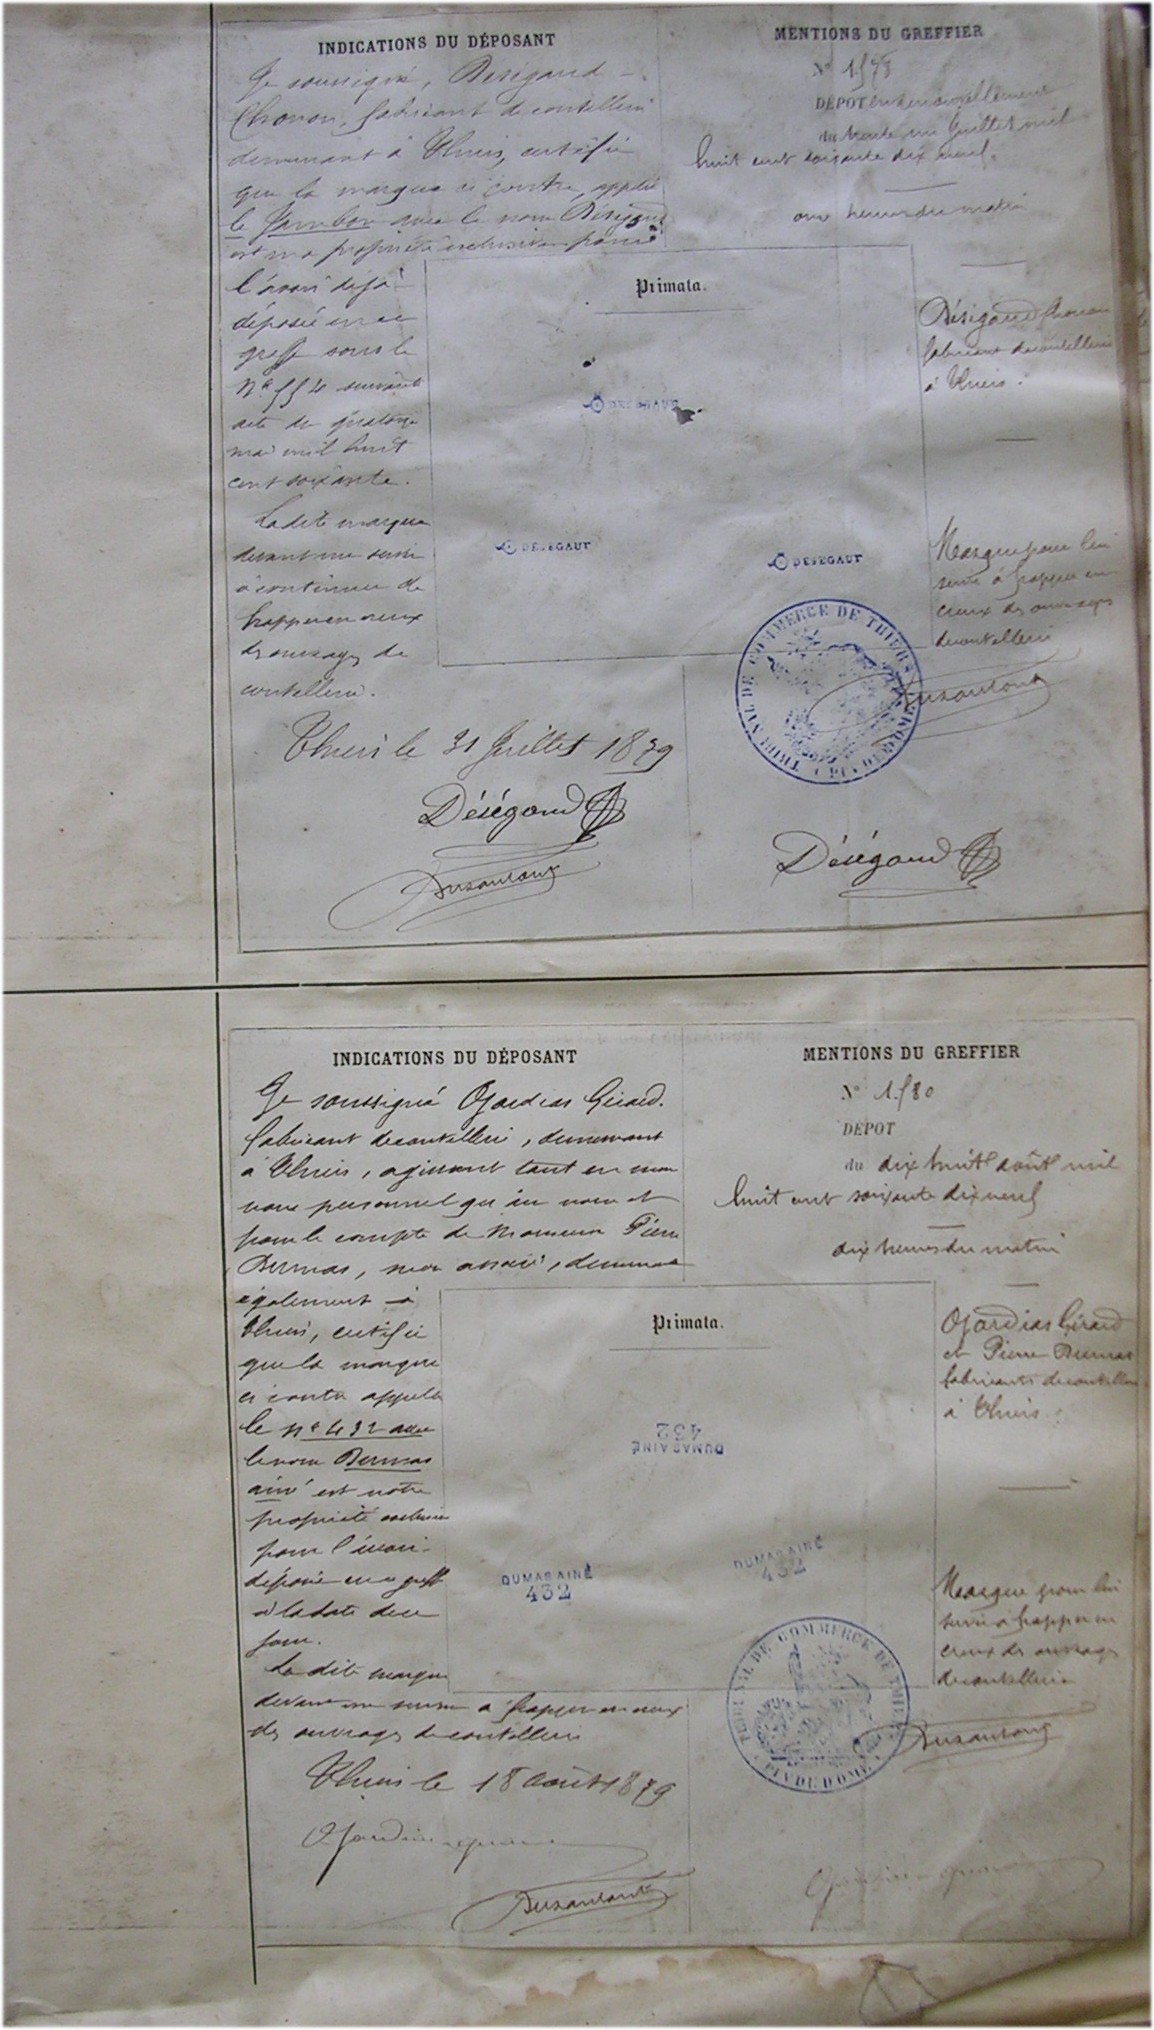 INDICATIONS DU DÉPOSANT
Je soussigné, Déségaud
Chovon, fabricant de coutellerie
demeurant à Thiers, certifie
que la marque ci contre, appelée
le Jambon avec le nom Déségaut
est ma propriété exclusive pour
l'avoir déjà
déposée en ce
greffe sous le
Nº 554 suivant
acte du quatorze
mai mil huit
cent soixante.
Ladite marque
devant me servir
à continuer de
frapper en creux
des ouvrages de
coutellerie.
Thiers le 31 Juillet 1879
Déségaud
MENTIONS DU GREFFIER
Nº 1578
DÉPOT en renouvellement
du trente un Juillet mil
huit cent soixante dix neuf.
onze heures du matin
Primata.
DESEGAUT
DESEGAUT
Déségaud Chovon
fabricant de coutellerie
à Thiers.
Marque pour lui
servir à frapper en
creux des ouvrages
de coutellerie
TRIBUNAL DE COMMERCE DE THIERS
(PUY DE DOME)
Déségaud
INDICATIONS DU DÉPOSANT
Je soussigné Ojardias Girard.
fabricant de coutellerie, demeurant
à Thiers, agissant tant en mon
nom personnel qu'au nom et
pour le compte de Monsieur Pierre
Dumas, mon associé, demeurant
également à
Thiers, certifie
que la marque
ci contre appelée
le Nº 432 avec
le nom Dumas
ainé est notre
propriété exclusive
pour l'avoir
déposée en ce greffe
à la date de ce
jour.
La dite marque
devant me servir à frapper en creux
des ouvrages de coutellerie
Thiers le 18 Août 1879
MENTIONS DU GREFFIER
Nº 1580
DÉPOT
du dix huit août mil
huit cent soixante dix neuf
dix heures du matin
Primata.
DUMAS AINÉ
432
DUMAS AINÉ
432
DUMAS AINÉ
432
Ojardias Girard
et Pierre Dumas
fabricants de coutellerie
à Thiers.
Marque pour lui
servir à frapper en
creux des ouvrages
de coutellerie
TRIBUNAL DE COMMERCE DE THIERS
(PUY DE DOME)